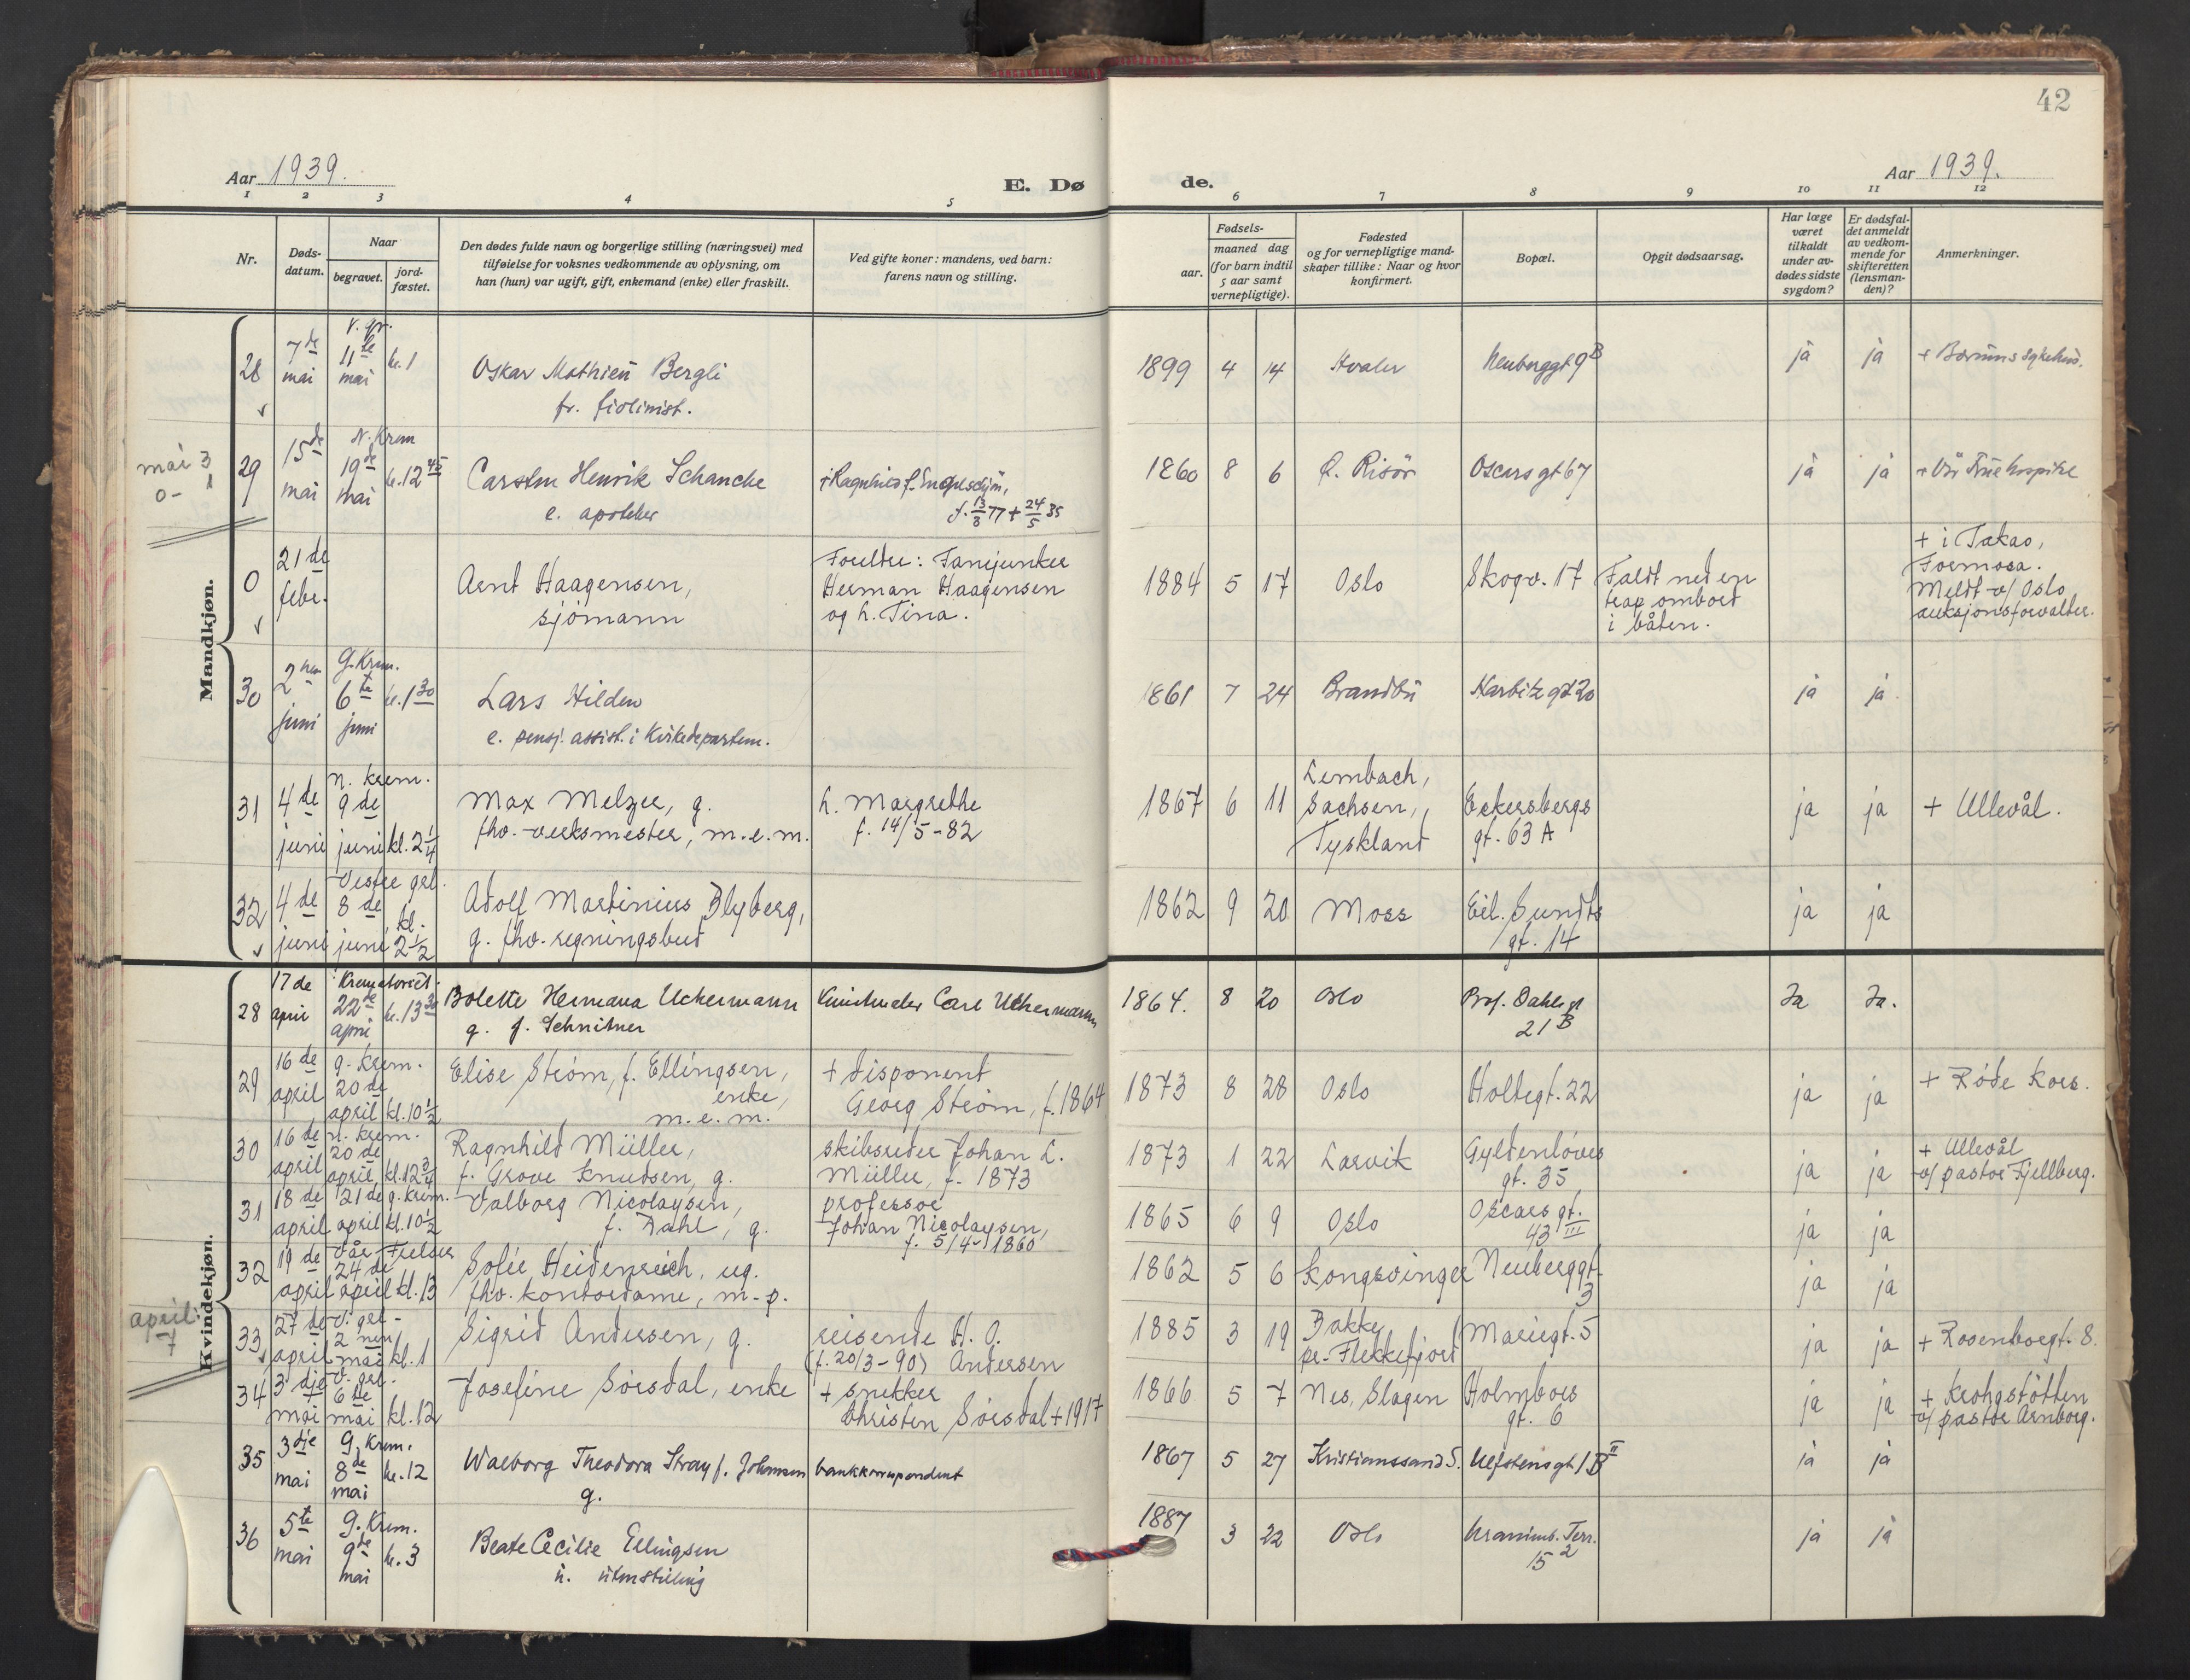 42
Aar 1939.
E. Dø
de.
Aar 1939.
1 2 3 4 5 6 7 8 9 10 11 12
Nr.
Døds-
datum.
Naar
begravet.
jord-
fæstet.
Den dødes fulde navn og borgerlige stilling (næringsvei) med
tilføielse for voksnes vedkommende av oplysning, om
han (hun) var ugift, gift, enkemand (enke) eller fraskilt.
Ved gifte koner: mandens, ved barn:
farens navn og stilling.
Fødsels-
aar.
maaned dag
(for barn indtil
5 aar samt
vernepligtige).
Fødested
og for vernepligtige mand-
skaper tillike: Naar og hvor
konfirmert.
Bopæl.
Opgit dødsaarsag.
Har læge
været
tilkaldt
under av-
dødes sidste
sygdom?
Er dødsfal-
det anmeldt
av vedkom-
mende for
skifteretten
(lensman-
den)?
Anmerkninger.
Mandkjøn.
28 7de mai v. gr. 11te mai kl. 1
Oskar Mathieu Bergli
fr. fiolinist.
1899 4 14 Hvaler Neuberggt 9B ja ja + Bærums sykehus.
mai 3
0- 1
29 15de mai N. Krem 19de mai kl. 12 45
Carsten Henrik Schanche
e. apoteker
+ Ragnhild f.
f. 13/8 77 + 24/5 35
1860 8 6 Ø. Risör Oscars gt 67 ja ja + Vår Frue hospital
0 21de febr.
Arnt Haagensen,
sjömann
Foreldre: Fanejunker
Herman Haagensen
og h. Tina.
1884 5 17 Oslo Skogv. 17
Faldt ned en
trap ombord
i båten.
+ i Takao,
Formosa.
Meldt v/ Oslo
auksjonsforvalter.
30 2nen juni G. Krem. 6te juni kl. 1 30
Lars Hilden
e. pensj. assist. i Kirkedepartem.
1861 7 24 Brandbu Harbitz gt 20 ja ja
31 4de juni n. krem. 9de juni kl. 2 1/4
Max Melzer, g.
fhv. verksmester, m.e.m.
h. Margrethe
f. 14/5 - 82
1867 6 11
Lembach,
Sachsen,
Tyskland
Eckersbergs
gt. 63 A
ja ja + Ullevål.
32 4de juni Vestre grl. 8de juni kl. 2 1/2
Adolf Martinius Blyberg,
g. fhv. regningsbud
1862 9 20 Moss
Eil. Sundts
gt. 14
ja ja
Kvindekjøn.
28 17de april Krematoriet. 22de april kl. 13 30
Bolette Hermana Uchermann
g. f. Schnitner
Kunstmaler Carl Uchermann
1864. 8 20 Oslo
Prof. Dahls gt
21 B
Ja Ja.
29 16de april g. krem. 20de april kl. 10 1/2
Elise Strøm, f. Ellingsen,
enke,
m.e.m.
+ disponent
Georg Strøm, f. 1864
1873 8 28 Oslo Holtegt. 22 ja ja + Røde Kors.
30 16de april n. krem. 20de april kl. 12 3/4
Ragnhild Müller,
f. Grove Knudsen, g.
skibsreder Johan L.
Müller, f. 1873
1873 1 22 Larvik
Gyldenløves
gt. 35
ja ja
+ Ullevål
v/ pastor Fjellberg.
31 18de april 21de g. krem. april kl. 10 1/2
Valborg Nicolaysen,
f. Dahl, g.
professor
Johan Nicolaysen,
f. 5/4 - 1860
1865 6 9 Oslo
Oscars gt.
43 III
ja ja
32 19de april Vår Frelser 24de april kl. 13
Sofie Heidenreich, ug.
fhv. kontordame, m.p.
1862 5 6 Kongsvinger
Neuberggt.
3
ja ja
april:
7
33 27de april V. grl. 2nen mai kl. 1
Sigrid Andersen, g.
reisende H. O.
(f. 20/3-90) Andersen
1885 3 19
Bakke
pr. Flekkefjord
Mariegt. 5 ja ja + Rosenborgt. 8.
34 3dje mai V. grl. 6te mai kl. 12
Josefine Sörsdal, enke
+ snekker
Christen Sörsdal + 1917
1866 5 7 Nes, Slagen
Holmboes
gt. 6
ja ja
+ Krohgstötten
v/ pastor Arnborg.
35 3dje mai G. Krem. 8de mai kl. 12
Walborg Theodora Stray f. Johansen
g.
bankkorrespondent
1867 5 27 Kristianssand S. Uelfstens gt 1 B II ja ja
36 5te mai G. Krem. 9de mai kl. 3
Beate Cecilie Ellingsen
u. uten stilling
1887 3 22 Oslo
Uranienb. Terr.
15 2
ja ja